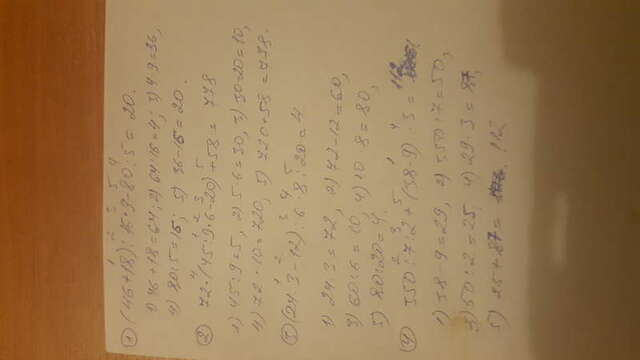 1) (46+18):16·9-80:5=20.
1) 46+18=64; 2) 64:16=4; 3) 4·9=36,
4) 80:5=16; 5) 36-16=20.
2) 72·(45:9·6-20)+58=778
1) 45:9=5, 2) 5·6=30, 3) 30-20=10,
4) 72·10=720, 5) 720+58=778.
3) (24·3-12):6·8:20=4
1) 24·3=72, 2) 72-12=60,
3) 60:6=10, 4) 10·8=80,
5) 80:20=4.
4) 350:7:2+(38-9)·3=112
1) 38-9=29, 2) 350:7=50,
3) 50:2=25, 4) 29·3=87,
5) 25+87= 112